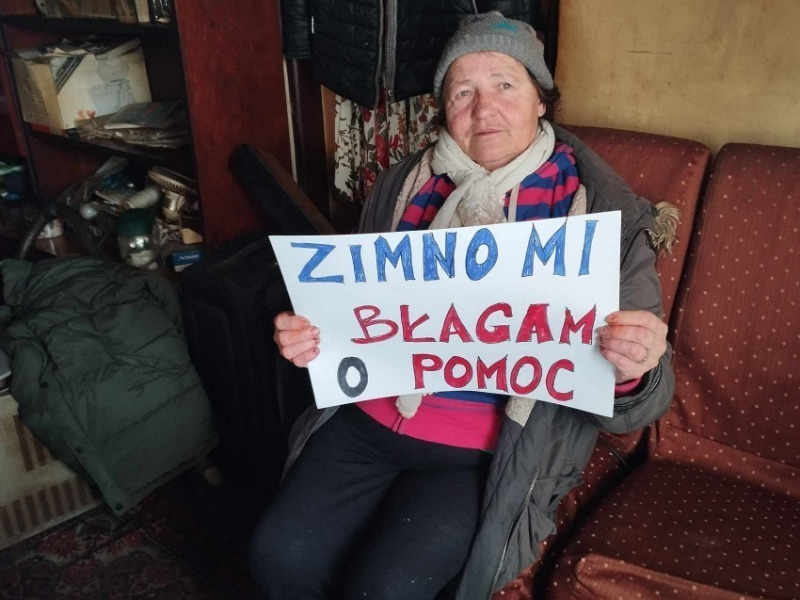 ZIMNO MI
BŁAGAM
O POMOC